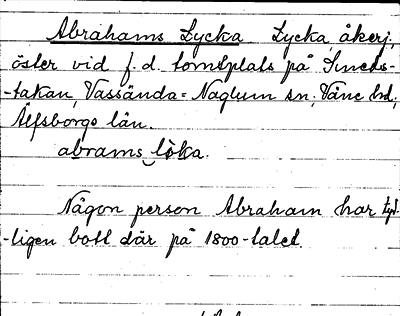 Abrahams Lycka Lycka, åkerj,
öster vid f.d. tomtplats på Smeds-
-takan, Vassända=Naglum sn, Väne hd,
Älfsborgs län.
abrams löka.
Någon person Abraham har tyd-
-ligen bott där på 1800-talet.